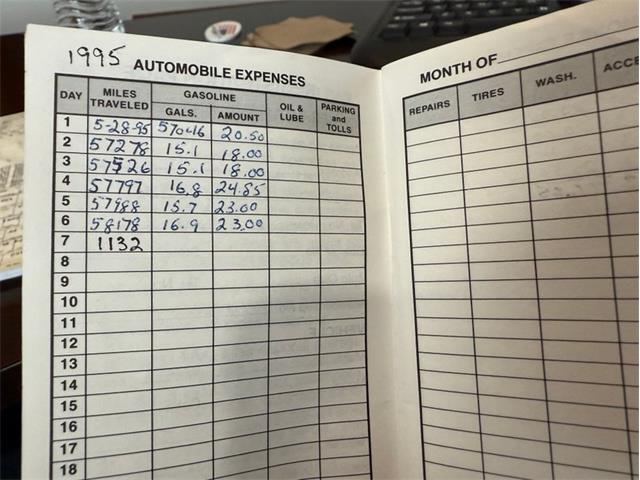 1995 AUTOMOBILE EXPENSES
DAY MILES TRAVELED GASOLINE GALS. AMOUNT OIL & LUBE PARKING and TOLLS
1 5-28-95 57046 20.50
2 57278 15.1 18.00
3 57526 15.1 18.00
4 57797 16.8 24.85
5 57988 15.7 23.00
6 58178 16.9 23.00
7 1132
8
9
10
11
12
13
14
15
16
17
18
MONTH OF
REPAIRS TIRES WASH. ACCE